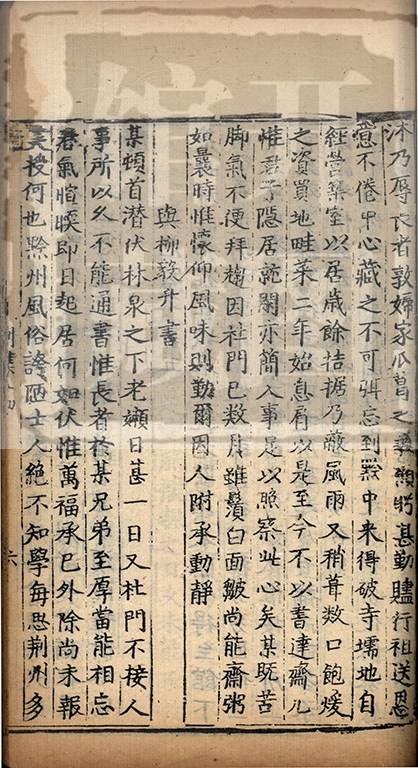 沐乃辱長者敦婦家瓜葛之
意不倦中心藏之不可弭忘到黔中来得破寺壖地自
經營築室以居歳餘拮据乃蔽風雨又稍葺数口飽煖
之資買地畦菜二年始息肩以是至今不以書達齋几
惟君子隠居就閑亦簡人事是以照察此心矣某既苦
脚氣不便拜趨因杜門已数月雖鬚白面皺尚能齋粥
如曩時惟懷仰風味則勤爾因人附承動静
與柳毅升書
某頓首潜伏林泉之下老嬾日甚一日又杜門不接人
事所以久不能通書惟長者於某兄弟至厚當能相忘
春氣暄暖即日起居何如伏惟萬福承已外除尚未報
美授何也黔州風俗陋士人絶不知學每思荆州多
六